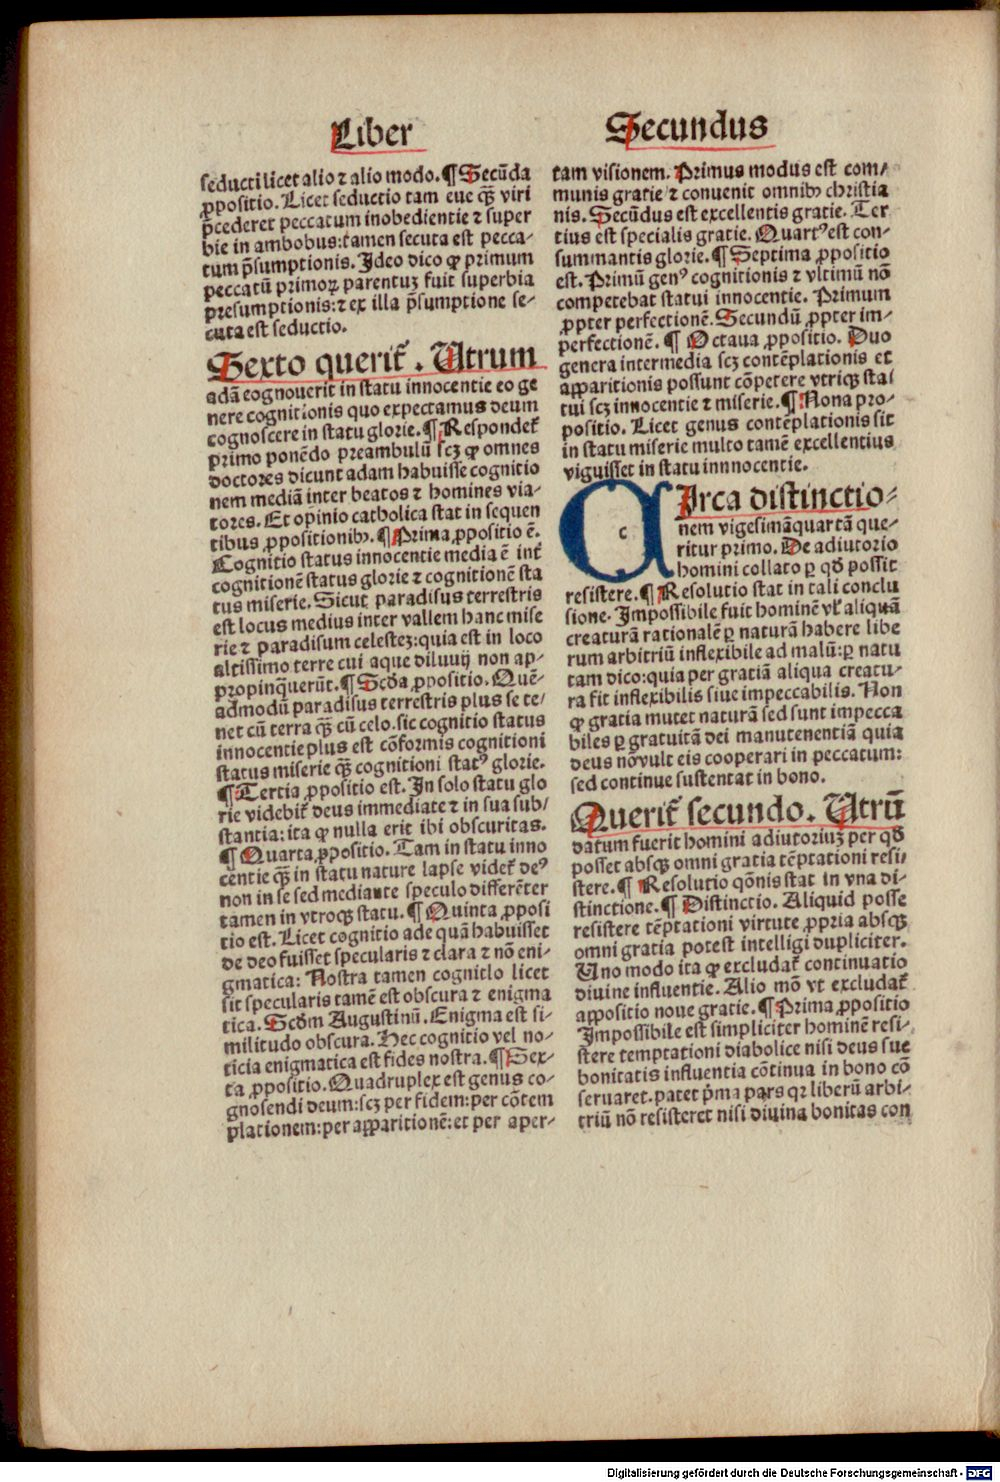 Liber
Secundus
seducti licet alio ⁊ alio modo. ¶ Secūda
ꝓpositio. Licet seductio tam eue qȝ̄ viri
p̄cederet peccatum inobedientie ⁊ super
bie in ambobus: tamen secuta est pecca-
tum p̄sumptionis. Ideo dico ꝙ primum
peccatū primoꝝ parentuȝ fuit superbia
presumptionis: ⁊ ex illa p̄sumptione se-
cuta est seductio.
Sexto querit᷑. Utrum
adā cognouerit in statu innocentie eo ge
nere cognitionis quo expectamus deum
cognoscere in statu glorie. ¶ Respondet᷑
primo ponēdo preambulū scȝ ꝙ omnes
doctores dicunt adam habuisse cognitio
nem mediā inter beatos ⁊ homines via-
tores. Et opinio catholica stat in sequen
tibus ꝓpositionibꝰ. ¶ Prima ꝓpositio ē.
Cognitio status innocentie media ē int᷑
cognitionē status glorie ⁊ cognitionē sta
tus miserie. Sicut paradisus terrestris
est locus medius inter vallem hanc mise
rie ⁊ paradisum celesteȝ: quia est in loco
altissimo terre cui aque diluuij non ap-
propinq̄uerūt. ¶ Scd̄a ꝓpositio. Quē-
admodū paradisus terrestris plus se te-
net cū terra qȝ̄ cū celo. sic cognitio status
innocentie plus est cōformis cognitioni
status miserie qȝ̄ cognitioni statꝰ glorie.
¶ Tertia ꝓpositio est. In solo statu glo
rie videbit᷑ deus immediate ⁊ in sua sub-
stantia: ita ꝙ nulla erit ibi obscuritas.
¶ Quarta ꝓpositio. Tam in statu inno
centie qȝ̄ in statu nature lapse videt᷑ deꝰ
non in se sed mediante speculo differēter
tamen in vtroqȝ statu. ¶ Quinta ꝓposi
tio est. Licet cognitio ade quā habuisset
de deo fuisset specularis ⁊ clara ⁊ nō eni-
gmatica: Nostra tamen cognitio licet
sit specularis tamē est obscura ⁊ enigma
tica. Scd̄m Augustinū. Enigma est si-
militudo obscura. Hec cognitio vel no-
ticia enigmatica est fides nostra. ¶ Sex-
ta ꝓpositio. Quadruplex est genus co-
gnoscendi deum: scȝ per fidem: per cōtem
plationem: per apparitionē: et per aper-
tam visionem. Primus modus est com-
munis gratie ⁊ conuenit omnibꝰ christia
nis. Secūdus est excellentis gratie. Ter
tius est specialis gratie. Quartꝰ est con-
summantis glorie. ¶ Septima ꝓpositio
est. Primū genꝰ cognitionis ⁊ vltimū nō
competebat statui innocentie. Primum
ꝓpter perfectionē. Secundū ꝓpter im-
perfectionē. ¶ Octaua ꝓpositio. Duo
genera intermedia scȝ contēplationis et
apparitionis possunt cōpetere vtriqȝ sta-
tui scȝ innocentie ⁊ miserie. ¶ Nona pro-
positio. Licet genus contēplationis sit
in statu miserie multo tamē excellentius
viguisset in statu innnocentie.
CIrca distinctio-
nem vigesimāquartā que-
ritur primo. De adiutorio
homini collato ꝑ qd̄ possit
resistere. ¶ Resolutio stat in tali conclu
sione. Impossibile fuit hominē vl᷑ aliquā
creaturā rationalē ꝑ naturā habere libe
rum arbitriū inflexibile ad malū: ꝑ natu
tam dico: quia per gratiā aliqua creatu-
ra fit inflexibilis siue impeccabilis. Non
ꝙ gratia mutet naturā sed sunt impecca
biles ꝑ gratuitā dei manutenentiā quia
deus nōvult eis cooperari in peccatum:
sed continue sustentat in bono.
Querit᷑ secundo. Utrū
datum fuerit homini adiutoriuȝ per qd̄
posset absqȝ omni gratia tēptationi resi-
stere. ¶ Resolutio qōnis stat in vna di-
stinctione. ¶ Distinctio. Aliquid posse
resistere tēptationi virtute ꝓpria absqȝ
omni gratia potest intelligi dupliciter.
Uno modo ita ꝙ excludat᷑ continuatio
diuine influentie. Alio mō vt excludat᷑
appositio noue gratie. ¶ Prima ꝓpositio
Impossibile est simpliciter hominē resi-
stere temptationi diabolice nisi deus sue
bonitatis influentia cōtinua in bono cō
seruaret. patet p̄ma pars qꝛ liberū arbi-
triū nō resisteret nisi diuina bonitas con
Digitalisierung gefördert durch die Deutsche Forschungsgemeinschaft - DFG